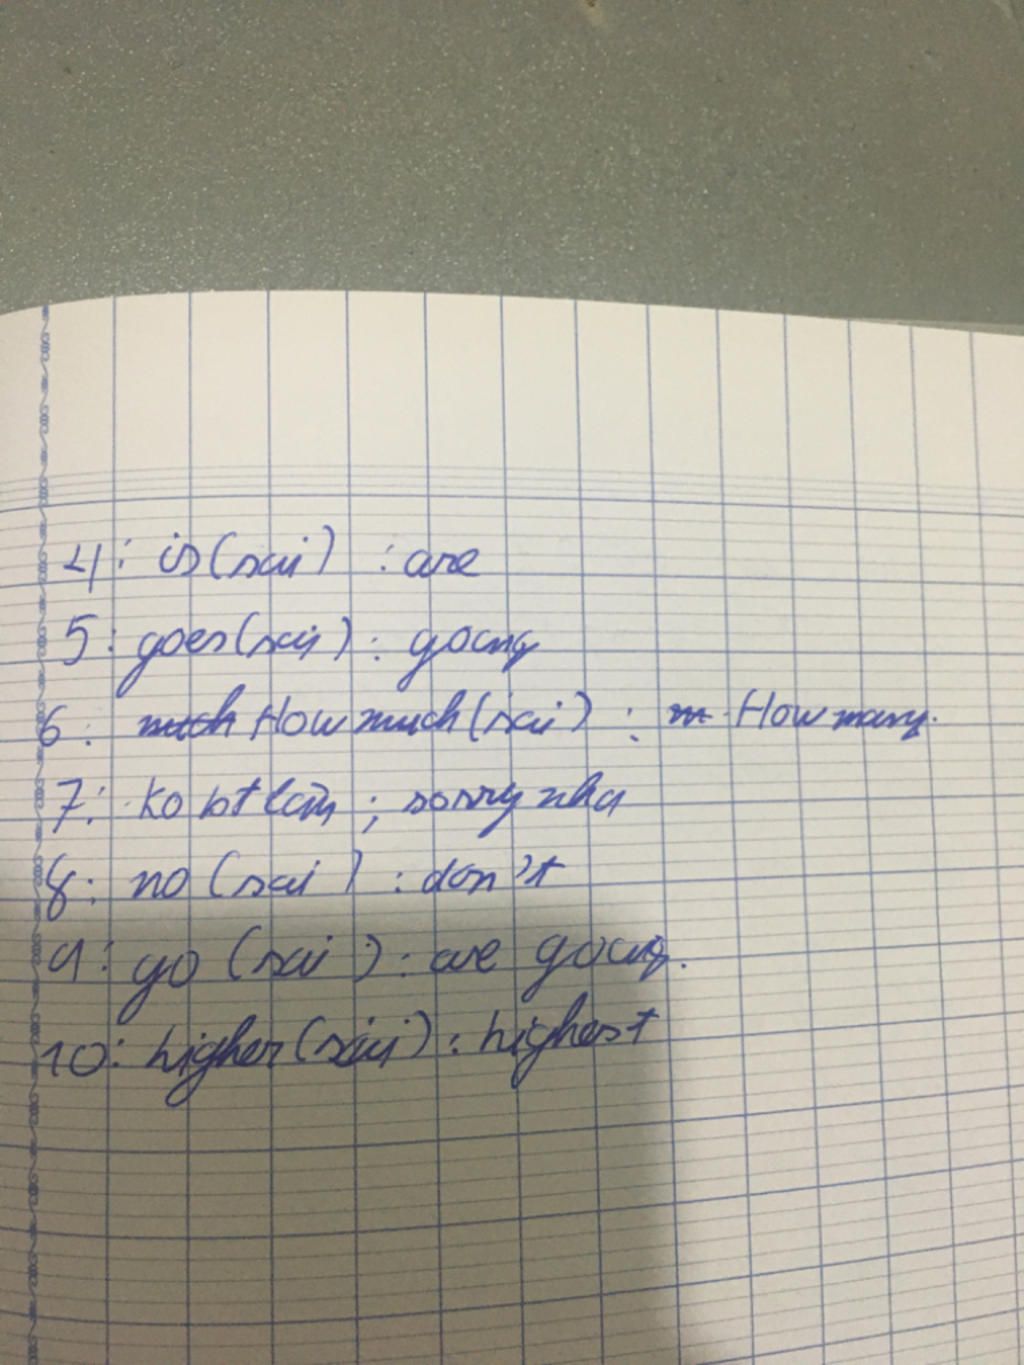 4: is (sai) : are
5: goes (sai) : going
6: much How much (sai) : m How many.
7: ko bt làm ; sorry nha
8: no (sai) : don't
9: go (sai) : are going.
10: higher (sai) : highest